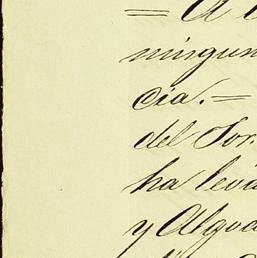 = A
ningun
cia.—
del Sor.
ha leva
y Algod